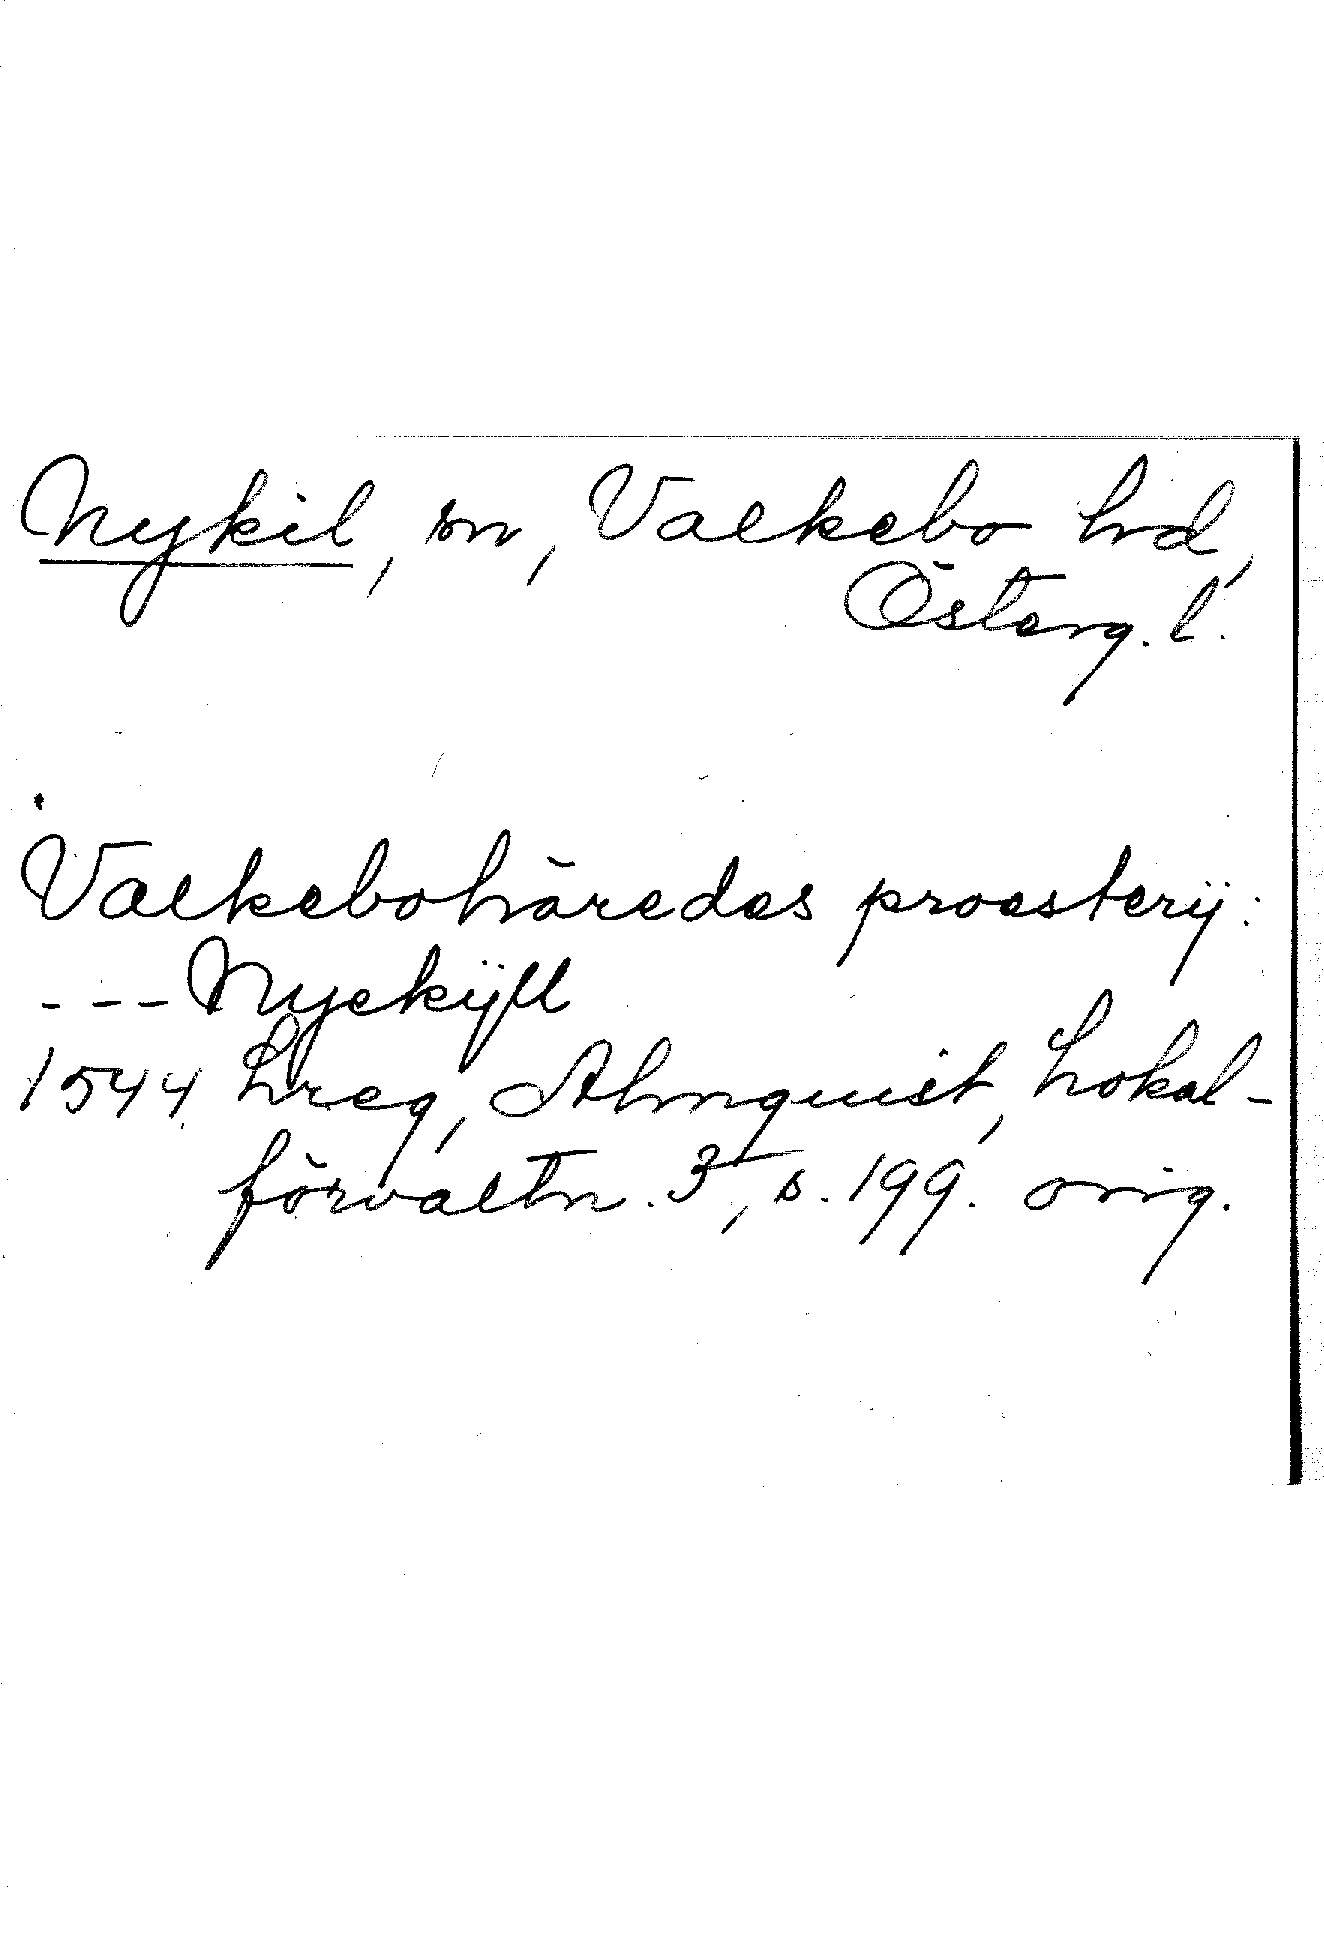 Nykil, sn, Valkebo hd,
Österg. l.
Valkebohäredes proesterÿ:
--- Nyckÿll
1544 Lreg, Almquist, Lokal-
förvaltn. 3, s. 199. orig.